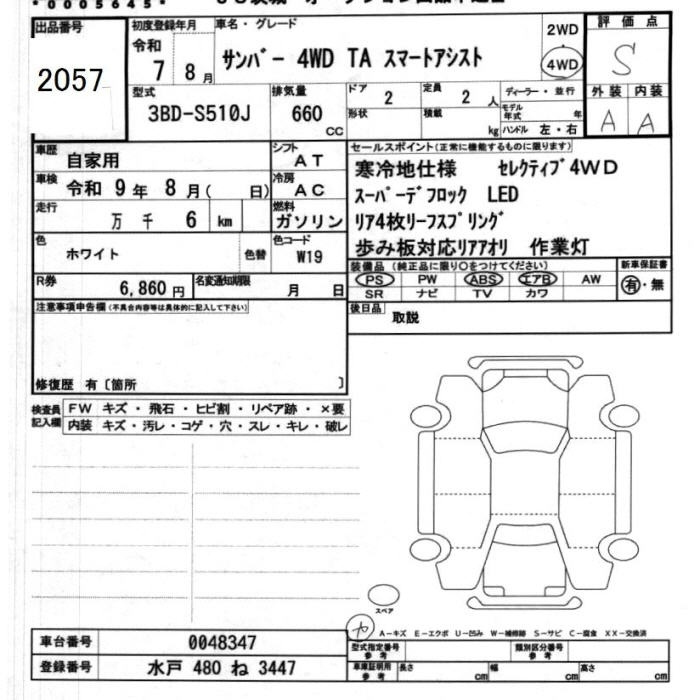 *0005645*
出品番号 初度登録年月 車名・グレード 評価点
2057 令和 7 8月 サンバー 4WD TA スマートアシスト 2WD 4WD S
型式 排気量 ドア 定員 ディーラー・並行 外装 内装
3BD-S510J 660 CC 2 2人 モデル年式 年 A A
形状 積載 kg ハンドル 左・右
車歴 自家用 シフト AT セールスポイント(正常に機能するものに限ります)
車検 令和 9年 8月( 日) 冷房 AC 寒冷地仕様 セレクティブ4WD
走行 万 千 6 km 燃料 ガソリン スーパーデフロック LED
リア4枚リーフスプリング
色 ホワイト 色替 色コード W19 歩み板対応リアアオリ 作業灯
装備品(純正品に限り○をつけてください) 新車保証書
R券 6,860円 名変通知期限 月 日 PS PW ABS エアB AW 有・無
SR ナビ TV カワ
注意事項申告欄(不具合内容等は具体的に記入して下さい) 後日品 取説
修復歴 有〔箇所 〕
検査員記入欄 FW キズ・飛石・ヒビ割・リペア跡・×要
内装 キズ・汚レ・コゲ・穴・スレ・キレ・破レ
スペア
A-キズ E-エクボ U-凹み W-補修跡 S-サビ C-腐食 XX-交換済
車台番号 0048347 型式指定番号 参考 類別区分番号 参考
登録番号 水戸 480 ね 3447 車庫証明用 参考 長さ cm 幅 cm 高さ cm